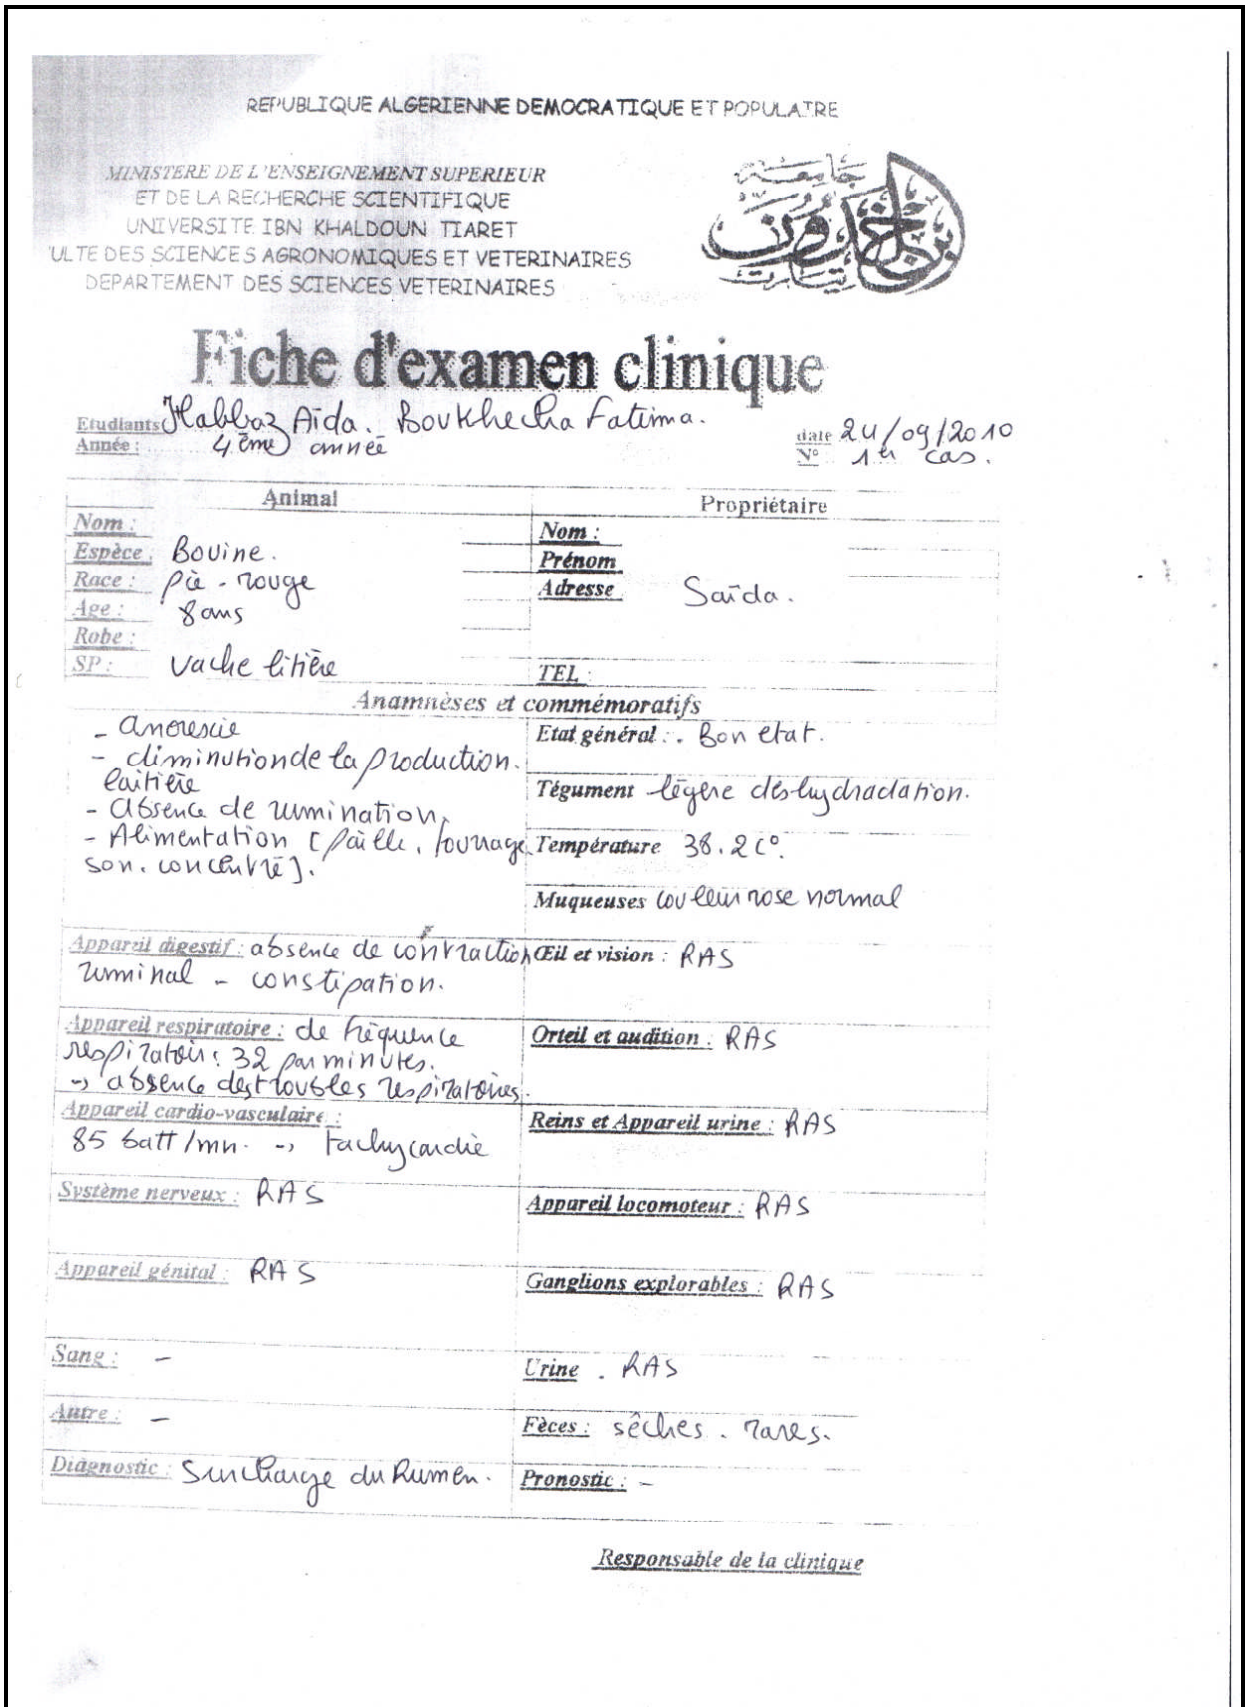 REPUBLIQUE ALGERIENNE DEMOCRATIQUE ET POPULAIRE
MINISTERE DE L'ENSEIGNEMENT SUPERIEUR
ET DE LA RECHERCHE SCIENTIFIQUE
UNIVERSITE IBN KHALDOUN TIARET
ULTE DES SCIENCES AGRONOMIQUES ET VETERINAIRES
DEPARTEMENT DES SCIENCES VETERINAIRES
جامعة
ابن خلدون
تيارت
Fiche d'examen clinique
Etudiants Habbaz Aïda. Boukhecha Fatima.
Année : 4ème année
date 24/09/2010
N° 1er cas.
Animal Propriétaire
Nom : Nom :
Espèce : Bovine. Prénom
Race : pie-rouge Adresse Saïda.
Age : 8ans
Robe :
SP : vache litière TEL :
Anamnèses et commémoratifs
- anorexie
- diminution de la production.
laitière
- absence de rumination.
- Alimentation [paille, fourrage,
son. concentré].
Etat général : . Bon etat.
Tégument légère déshydradation.
Température 38.2 C°.
Muqueuses couleur rose normal
Appareil digestif : absence de contraction
ruminal - constipation.
Œil et vision : RAS
Appareil respiratoire : de fréquence
respiratoir : 32 par minutes.
-> absence des troubles respiratoires.
Orteil et audition : RAS
Appareil cardio-vasculaire :
85 batt/mn. -> tachycardie
Reins et Appareil urine : RAS
Système nerveux : RAS
Appareil locomoteur : RAS
Appareil génital : RAS
Ganglions explorables : RAS
Sang : -
Urine . RAS
Autre : -
Fèces : sêches . rares.
Diagnostic : Surcharge du Rumen.
Pronostic : -
Responsable de la clinique